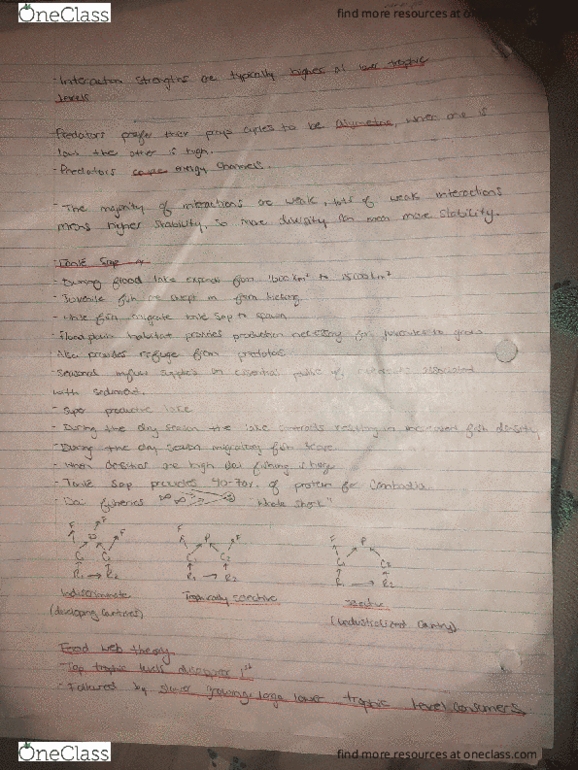 OneClass
find more resources at on
- Interaction strengths are typically higher at low trophic
levels
- Predators prefer their preys cycles to be Asymetric, when one is
low the other is high.
- Predators couple energy channels.
- The majority of interactions are weak, lots of weak interactions
means higher stability, so more diversity can mean more stability.
Tonle Sap
- During flood lake expands from km² to 15000 km²
- Juvenile fish are swept in from
- White fish migrate tonle Sap to spawn
- Flood plain habitat provides production necessary for juveniles to grow
Also provides refuge from predators
- Seasonal inflow supplies an essential pulse of nutrients associated
with sediment.
- Super productive lake
- During the dry season the lake contracts resulting in increased fish density
- During the dry season migrating fish
- When densities are high Dai fishing is
- Tonle Sap provides 40-70% of protein for Cambodia
- Dai fisheries "Whole
F F F
P
C₁ C₂
R₁ → R₂
indiscriminate
(developing countries)
F P F
C₁ C₂
R₁ → R₂
Trophically selective
F P
C₁ C₂
R₁ → R₂
selective
(industrialized country)
Food web theory
- Top trophic levels disappear 1st
- Followed by slower growing large lower trophic level consumers
OneClass
find more resources at oneclass.com